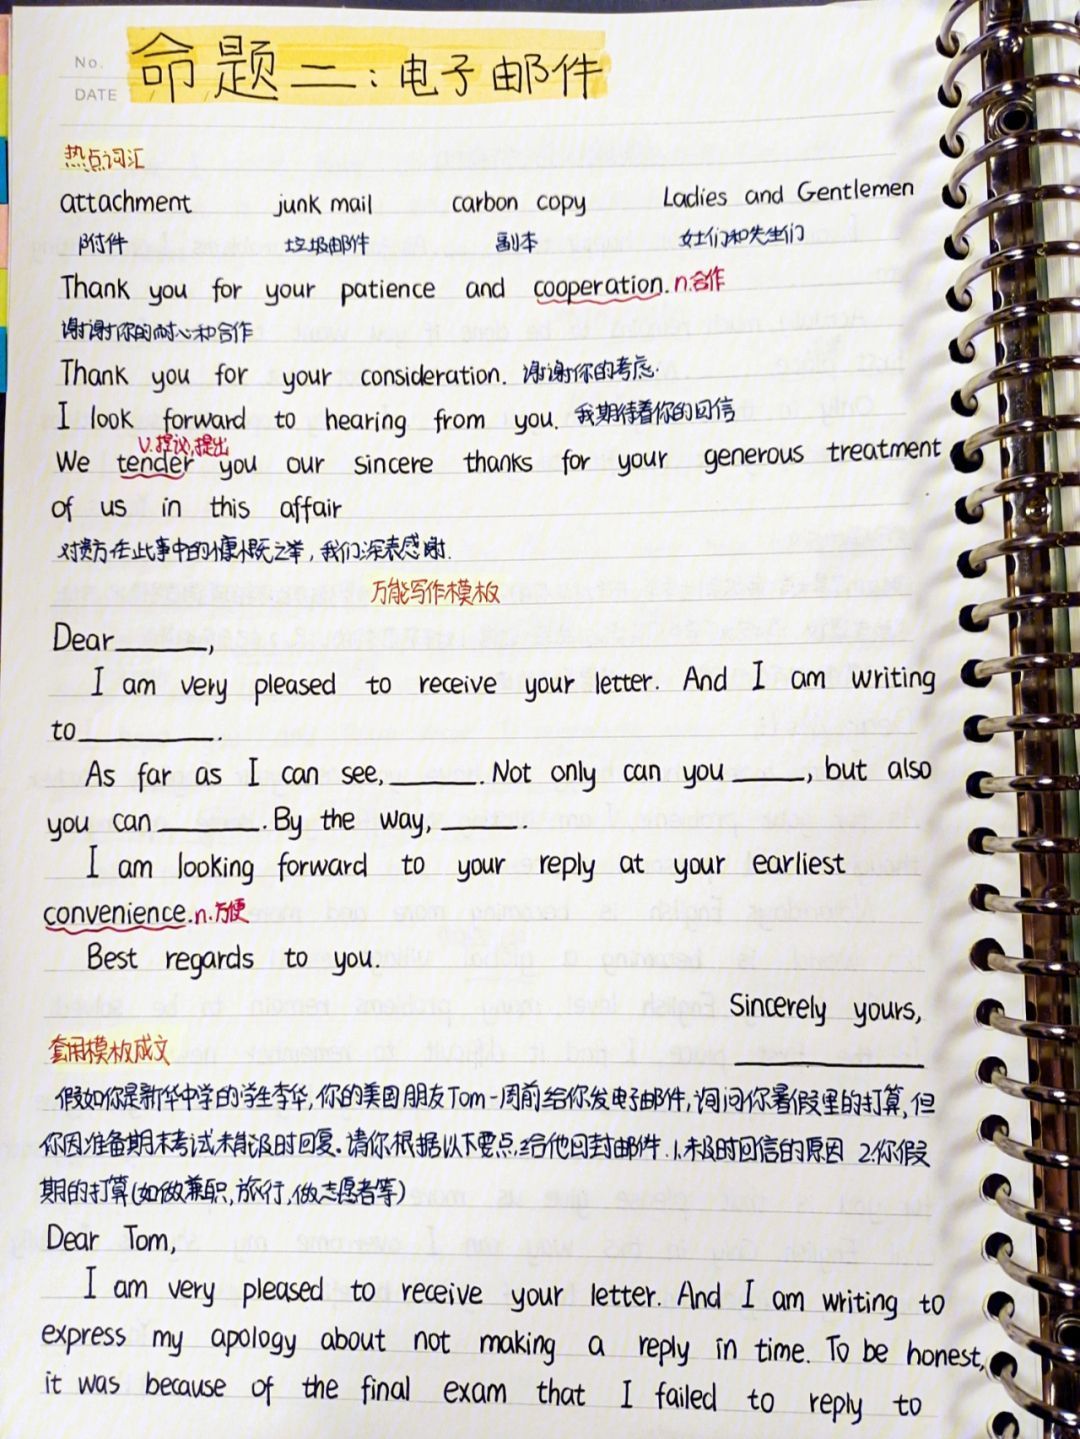 No.
命题二:电子邮件
DATE
热点词汇
attachment junk mail carbon copy Ladies and Gentlemen
附件 垃圾邮件 副本 女士们和先生们
Thank you for your patience and cooperation. n.合作
谢谢你的耐心和合作
Thank you for your consideration. 谢谢你的考虑.
I look forward to hearing from you. 我期待着你的回信
v.提议,提出
We tender you our sincere thanks for your generous treatment
of us in this affair
对贵方在此事中的慷慨之举,我们深表感谢.
万能写作模板
Dear______,
I am very pleased to receive your letter. And I am writing
to__________.
As far as I can see,______. Not only can you _____, but also
you can_______. By the way, _____.
I am looking forward to your reply at your earliest
convenience. n.方便
Best regards to you.
Sincerely yours,
套用模板成文
假如你是新华中学的学生李华,你的美国朋友Tom一周前给你发电子邮件,询问你暑假里的打算,但
你因准备期末考试未能及时回复。请你根据以下要点,给他回封邮件. 1.未及时回信的原因 2.你假
期的打算(如做兼职,旅行,做志愿者等)
Dear Tom,
I am very pleased to receive your letter. And I am writing to
express my apology about not making a reply in time. To be honest,
it was because of the final exam that I failed to reply to